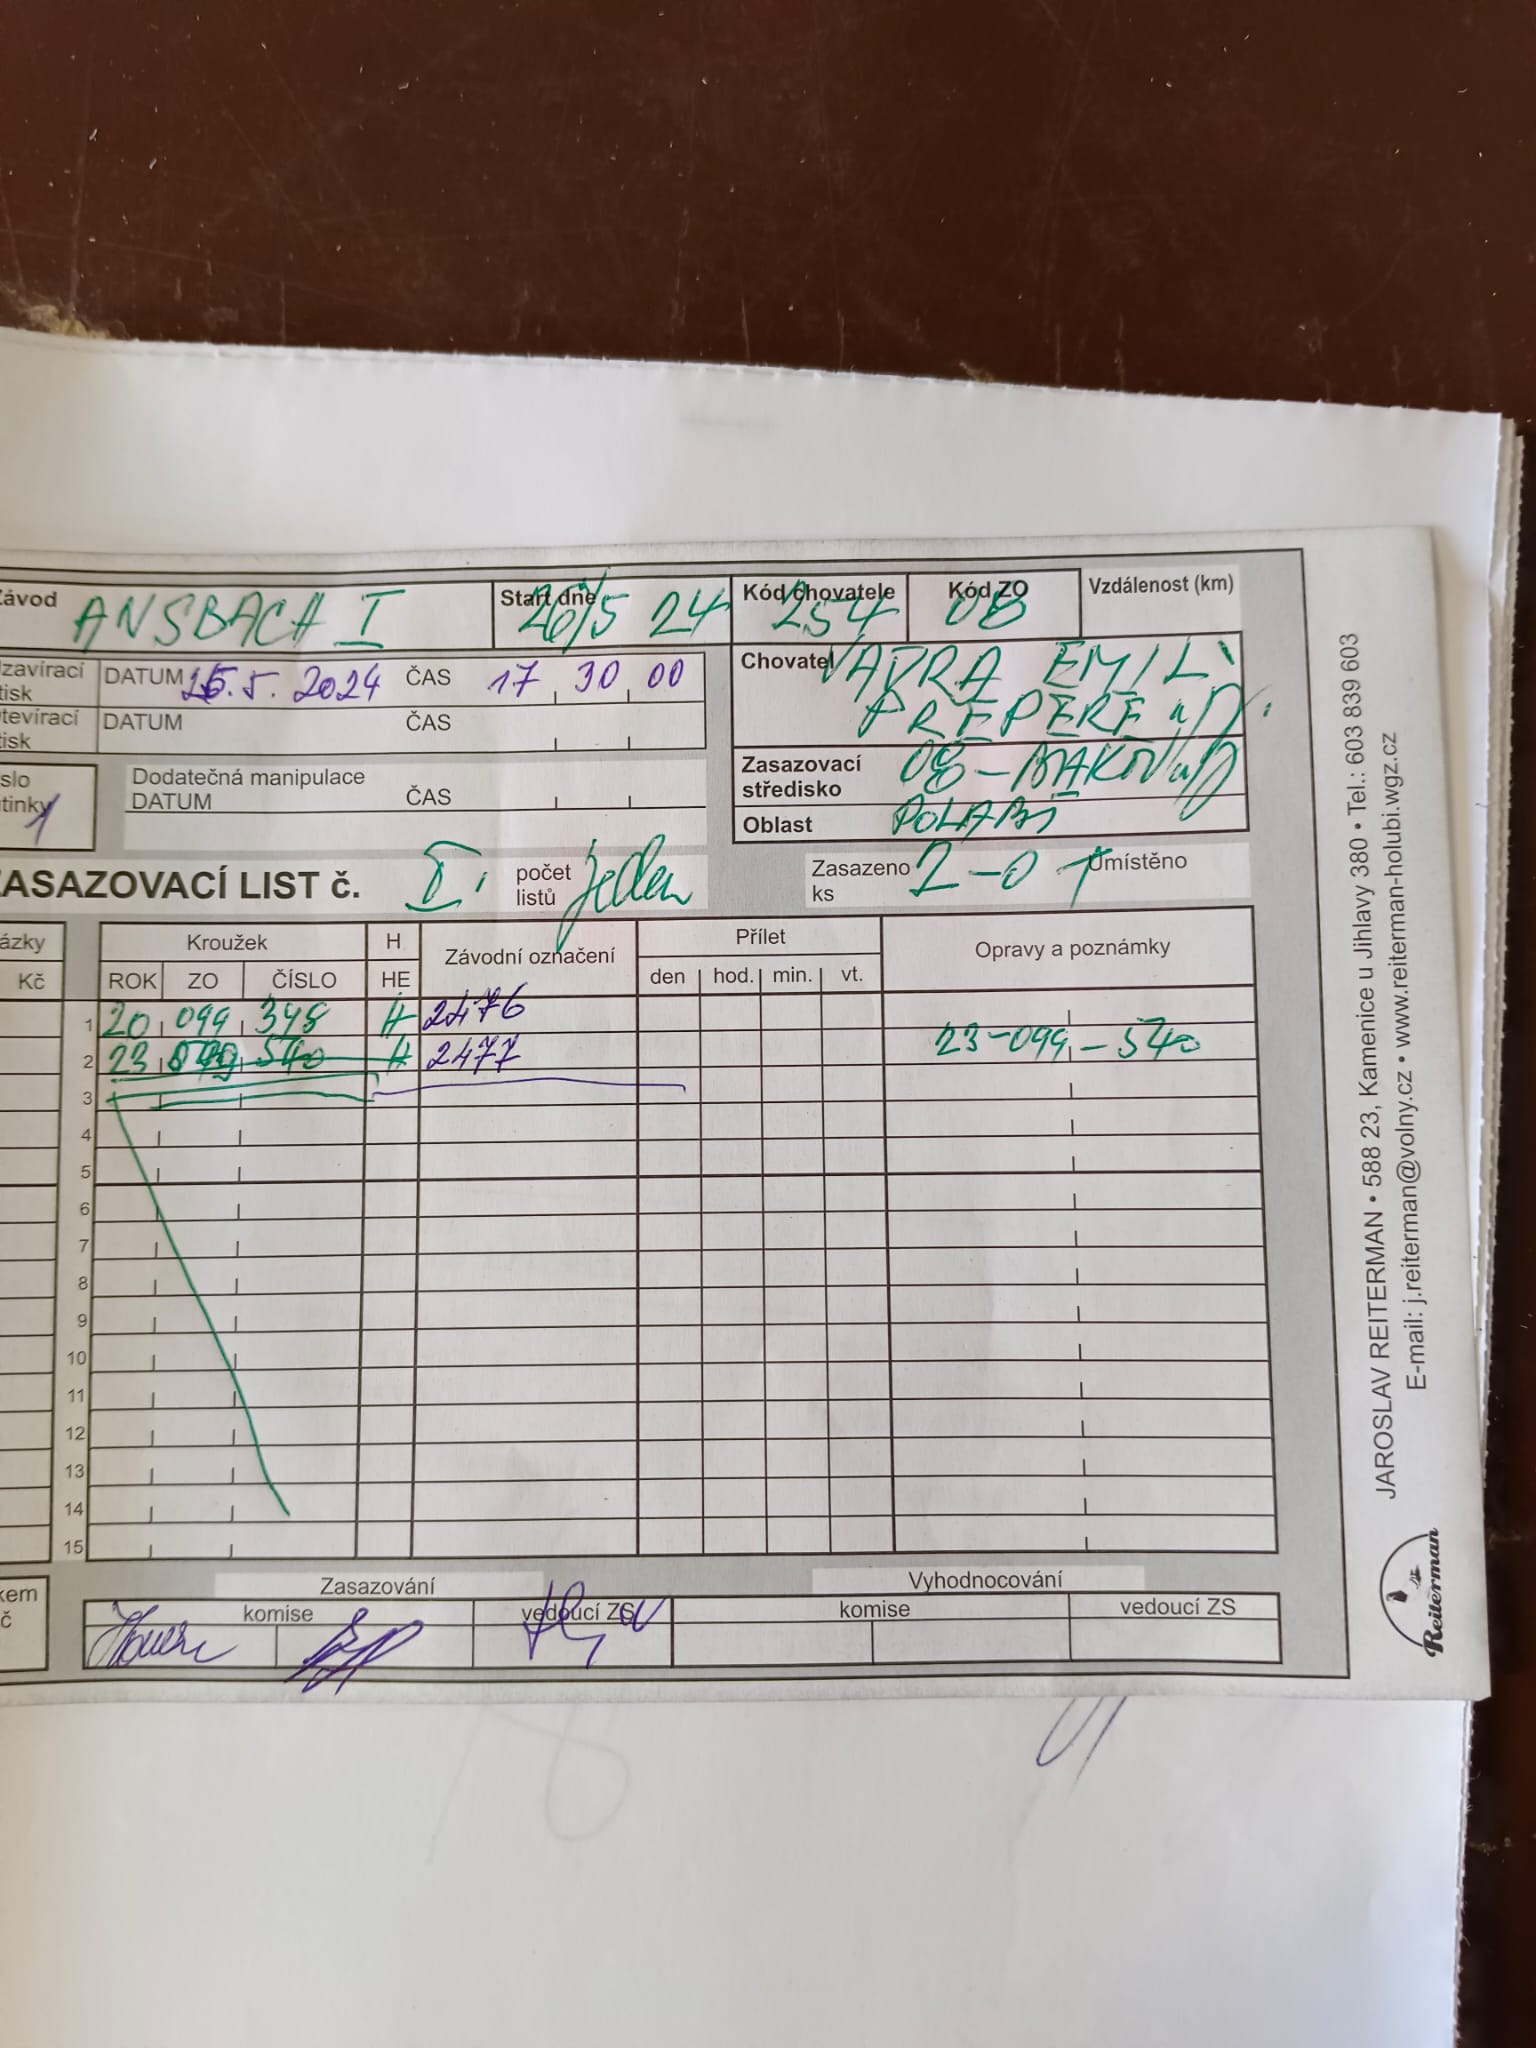 Závod ANSBACH I Start dne 26/5 24 Kód chovatele 254 Kód ZO 08 Vzdálenost (km)
zavírací tisk DATUM 25.5.2024 ČAS 17 30 00
tevírací tisk DATUM ČAS
Chovatel VÁVRA EMIL
PŘEPEŘE
slo tinky 1
Dodatečná manipulace
DATUM ČAS
Zasazovací středisko 08-BAKOV n/J
Oblast POLABÍ
ZASAZOVACÍ LIST č. I. počet listů jeden Zasazeno ks 2-0 Umístěno
ázky Kroužek H Závodní označení Přílet Opravy a poznámky
Kč ROK ZO ČÍSLO HE den hod. min. vt.
1 20 099 348 H 2476
2 23 099 540 H 2477 23-099-540
3
4
5
6
7
8
9
10
11
12
13
14
15
kem č Zasazování Vyhodnocování
komise vedoucí ZS komise vedoucí ZS
JAROSLAV REITERMAN • 588 23, Kamenice u Jihlavy 380 • Tel.: 603 839 603
E-mail: j.reiterman@volny.cz • www.reiterman-holubi.wgz.cz
Reiterman